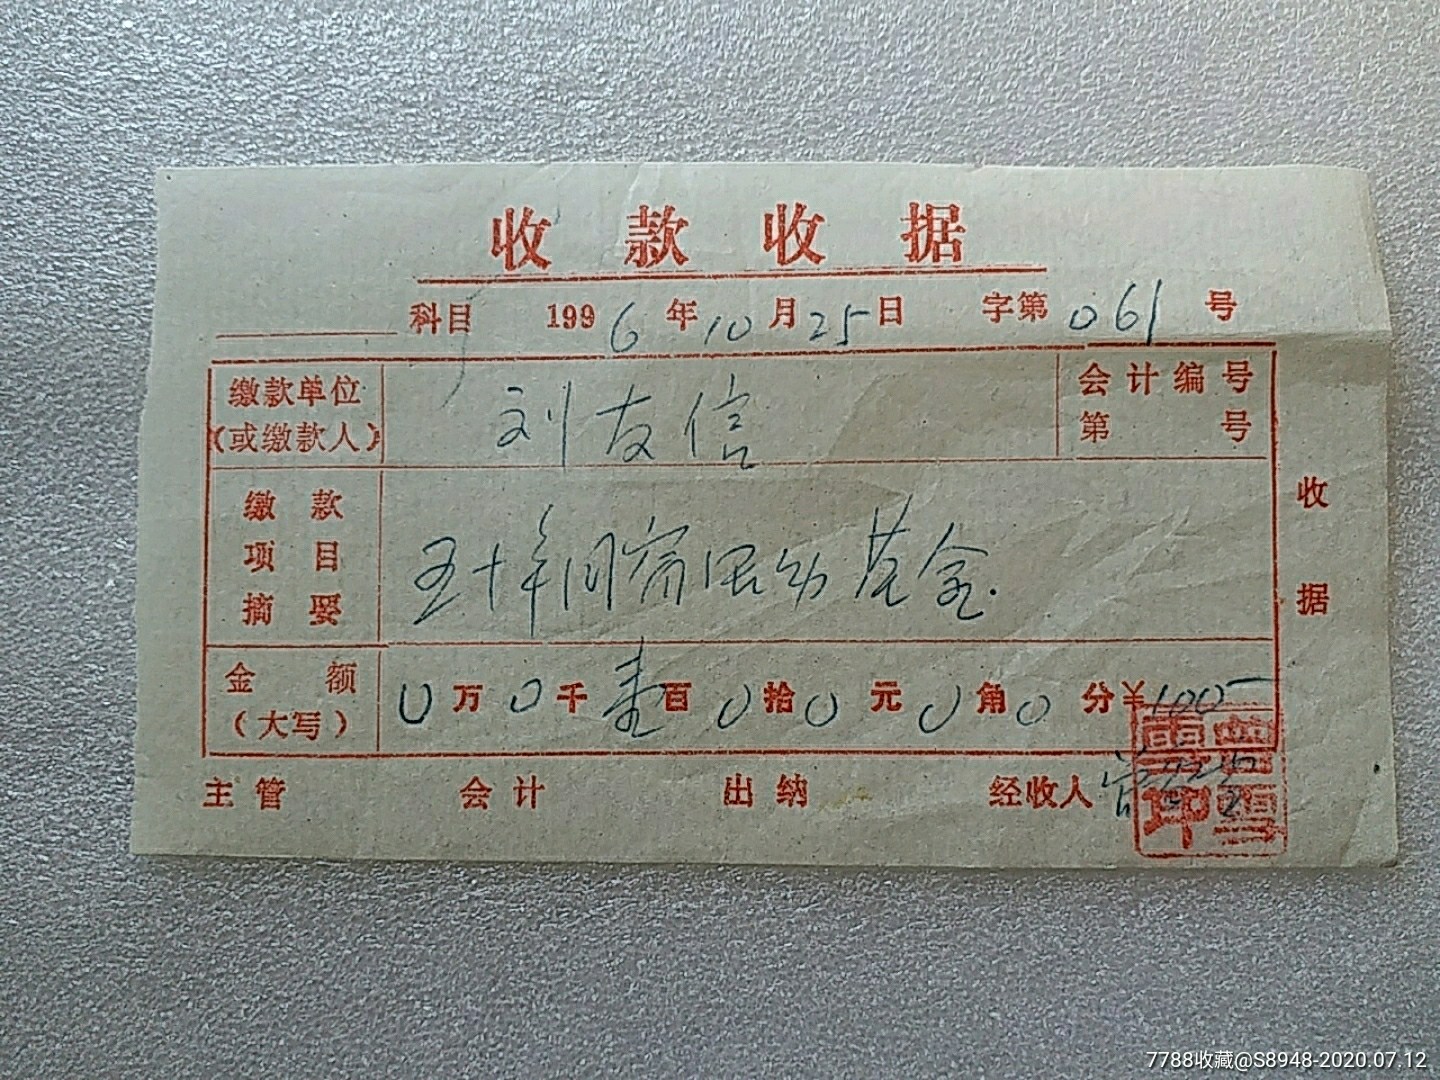 收款收据
科目 1996年10月25日 字第061号
缴款单位
(或缴款人)
刘友信
会计编号
第 号
缴款
项目
摘要
五十年同窗活动基金.
收据
金额
(大写)
0万0千壹百0拾0元0角0分¥100-
主管 会计 出纳 经收人
7788收藏@S8948-2020.07.12